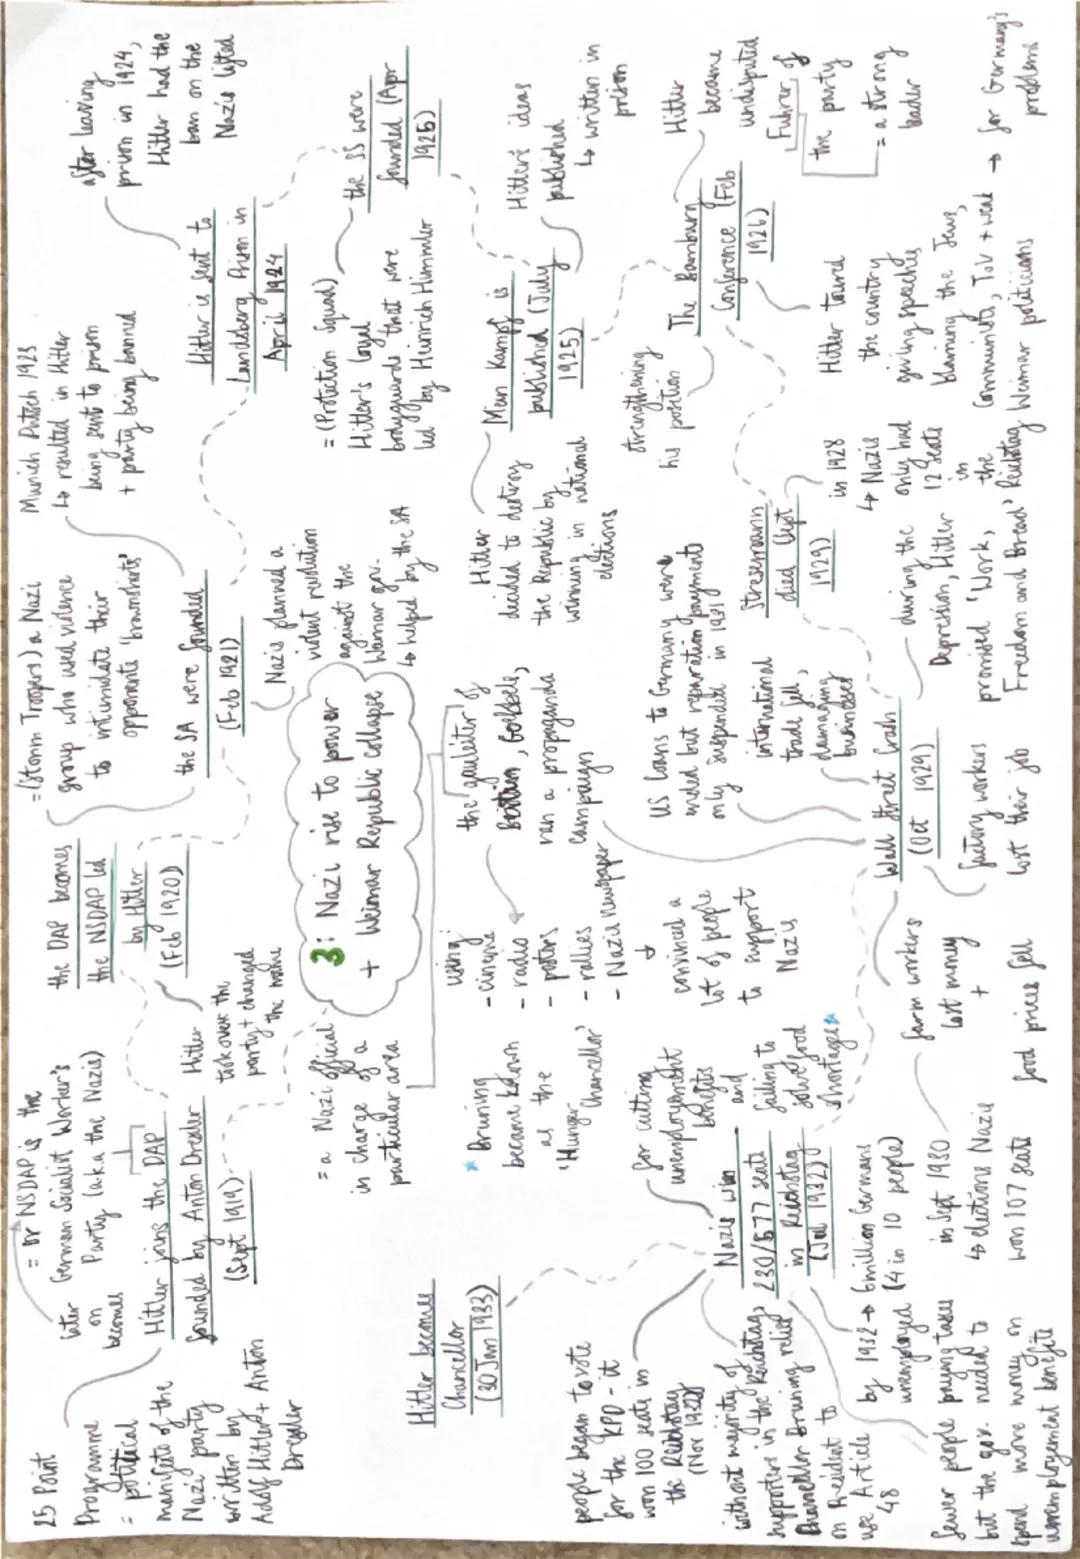 3: Nazi rise to power
+ Weimar Republic collapse
25 Point
Programme
= political
manifesto of the
Nazi party
written by
Adolf Hitler + Anton
Drexler
later
on
becomes
= or NSDAP is the
German Socialist Worker's
Party (a.k.a the Nazis)
Hitler joins the DAP
founded by Anton Drexler
(Sept 1919)
the DAP becomes
the NSDAP led
by Hitler
(Feb 1920)
Hitler
took over the
party + changed
the name
= (Storm Troopers) a Nazi
group who used violence
to intimidate their
opponents 'brownshirts'
the SA were founded
(Feb 1921)
Nazis planned a
violent revolution
against the
Weimar gov.
↳ helped by the SA
Munich Putsch 1923
↳ resulted in Hitler
being sent to prison
+ party being banned
Hitler is sent to
Landsberg Prison in
April 1924
after leaving
prison in 1924,
Hitler had the
ban on the
Nazis lifted
the SS were
founded (Apr
1925)
= (Protection Squad)
Hitler's loyal
bodyguards that were
led by Heinrich Himmler
Mein Kampf is
published (July
1925)
Hitler's ideas
published
↳ written in
prison
Hitler
decided to destroy
the Republic by
winning in national
elections
The Bamburg
Conference (Feb
1926)
strengthening
his position
Hitler
became
undisputed
Fuhrer of
the party
= a strong
leader
Hitler toured
the country
giving speeches
blaming the Jews,
Communists, ToV + weak
Weimar politicians
→ for Germany's
problems
Stresemann
died (Sept
1929)
in 1928
↳ Nazis
only had
12 seats
in
the
Reichstag
Wall Street Crash
(Oct 1929)
during the
Depression, Hitler
promised 'Work,
Freedom and Bread'
international
trade fell,
damaging
businesses
US loans to Germany were
ended but reparation payments
only suspended in 1931
the gauleiter of
Berlin, Goebbels,
ran a propaganda
campaign
= a Nazi official
in charge of a
particular area
using
- cinema
- radio
- posters
- rallies
- Nazi newspaper
↓
convinced a
lot of people
to support
Nazis
factory workers
lost their job
farm workers
lost money
+
food prices fell
in Sept 1930
↳ elections Nazis
won 107 seats
Nazis win
230/577 seats
in Reichstag
(Jul 1932)
* Bruning
became known
as the
'Hunger
Chancellor'
for cutting
unemployement
benefits
and
failing to
solve food
shortages *
by 1932 → 6million Germans
unemployed (4 in 10 people)
fewer people paying taxes
but the gov. needed to
spend more money on
unemployement benefits
without majority of
supporters in the Reichstag,
Chancellor Bruning relied
on President to
use Article
48
people began to vote
for the KPD - it
won 100 seats in
the Reichstag
(Nov 1932)
Hitler becomes
Chancellor
(30 Jan 1933)